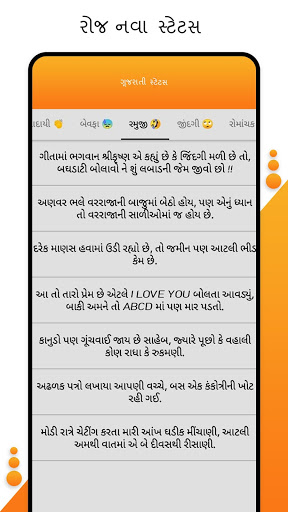 રોજ નવા સ્ટેટસ
ગુજરાતી સ્ટેટસ
ાદાયી 👏 બેવફા 😰 રમુજી 🤣 જીંદગી 🙄 રોમાંચક
ગીતામાં ભગવાન શ્રીકૃષ્ણ એ કહ્યું છે કે જિંદગી મળી છે તો,
બઘડાટી બોલાવો ને શું લબાડની જેમ જીવો છો !!
અણવર ભલે વરરાજાની બાજુમાં બેઠો હોય, પણ એનું ધ્યાન
તો વરરાજાની સાળીઓમાં જ હોય છે.
દરેક માણસ હવામાં ઉડી રહ્યો છે, તો જમીન પણ આટલી ભીડ
કેમ છે.
આ તો તારો પ્રેમ છે એટલે I LOVE YOU બોલતા આવડ્યું,
બાકી અમને તો ABCD માં પણ માર પડતો.
કાનુડો પણ ગૂંચવાઈ જાય છે સાહેબ, જ્યારે પૂછો કે વહાલી
કોણ રાધા કે રુકમણી.
અઢળક પત્રો લખાયા આપણી વચ્ચે, બસ એક કંકોત્રીની ખોટ
રહી ગઈ.
મોડી રાત્રે ચેટીંગ કરતા મારી આંખ ઘડીક મીંચાણી, આટલી
અમથી વાતમાં એ બે દીવસથી રીસાણી.